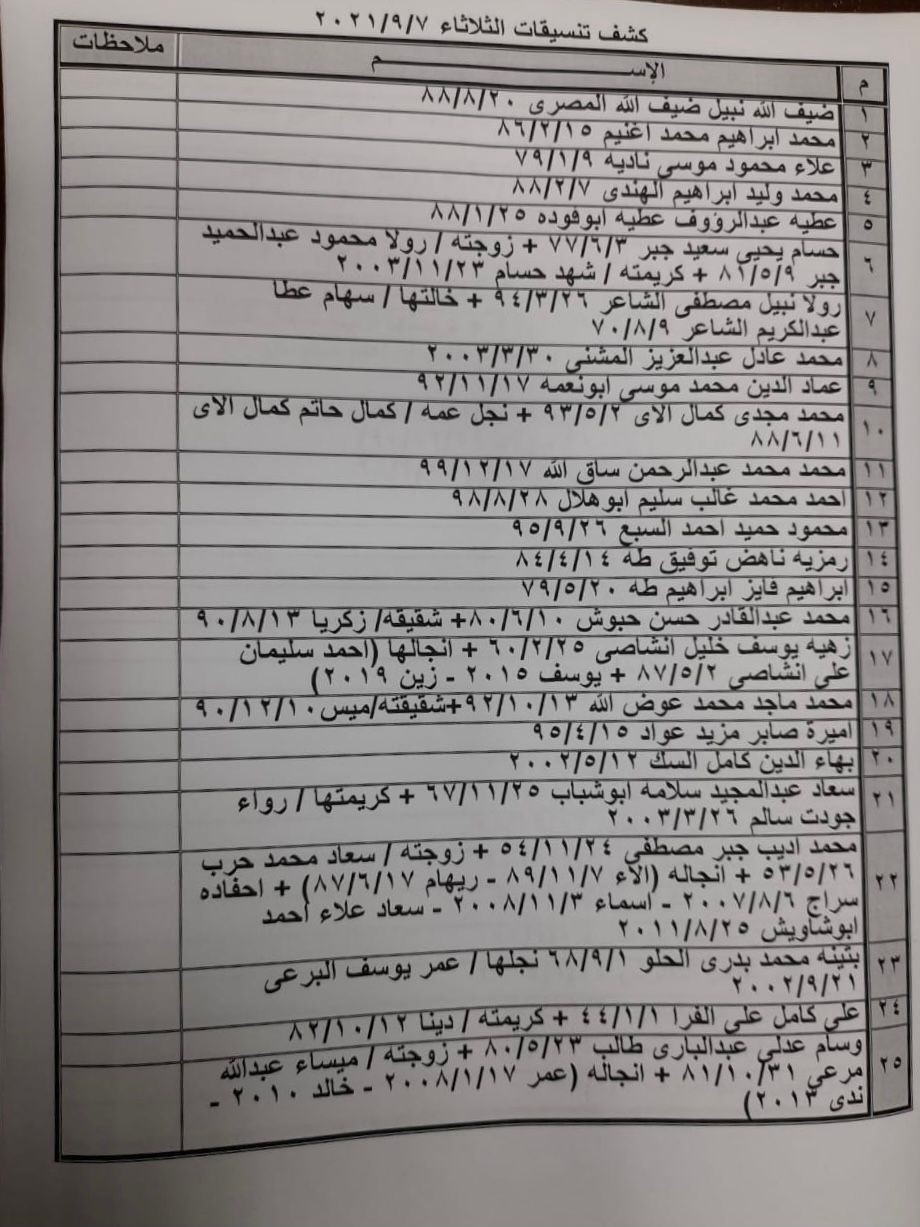 كشف تنسيقات الثلاثاء ٢٠٢١/٩/٧
م الإســـــم ملاحظات
١ ضيف الله نبيل ضيف الله المصرى ٨٨/٨/٢٠
٢ محمد ابراهيم محمد اغنيم ٨٦/٢/١٥
٣ علاء محمود موسى ناديه ٧٩/١/٩
٤ محمد وليد ابراهيم الهندى ٨٨/٢/٧
٥ عطيه عبدالرؤوف عطيه ابوفوده ٨٨/١/٢٥
٦ حسام يحيى سعيد جبر ٧٧/٦/٣ + زوجته / رولا محمود عبدالحميد
جبر ٨١/٥/٩ + كريمته / شهد حسام ٢٠٠٣/١١/٢٣
٧ رولا نبيل مصطفى الشاعر ٩٤/٣/٢٦ + خالتها / سهام عطا
عبدالكريم الشاعر ٧٠/٨/٩
٨ محمد عادل عبدالعزيز المشنى ٢٠٠٣/٣/٣٠
٩ عماد الدين محمد موسى ابونعمه ٩٢/١١/١٧
١٠ محمد مجدى كمال الاى ٩٣/٥/٢ + نجل عمه / كمال حاتم كمال الاى
٨٨/٦/١١
١١ محمد محمد عبدالرحمن ساق الله ٩٩/١٢/١٧
١٢ احمد محمد غالب سليم ابوهلال ٩٨/٨/٢٨
١٣ محمود حميد احمد السبع ٩٥/٩/٢٦
١٤ رمزيه ناهض توفيق طه ٨٤/٤/١٤
١٥ ابراهيم فايز ابراهيم طه ٧٩/٥/٢٠
١٦ محمد عبدالقادر حسن حبوش ٨٠/٦/١٠+ شقيقه/ زكريا ٩٠/٨/١٣
١٧ زهيه يوسف خليل انشاصى ٦٠/٢/٢٥ + انجالها (احمد سليمان
على انشاصى ٨٧/٥/٢ + يوسف ٢٠١٥ - زين ٢٠١٩)
١٨ محمد ماجد محمد عوض الله ٩٢/١٠/١٣+شقيقته/ميس ٩٠/١٢/١٠
١٩ اميرة صابر مزيد عواد ٩٥/٤/١٥
٢٠ بهاء الدين كامل السك ٢٠٠٢/٥/١٢
٢١ سعاد عبدالمجيد سلامه ابوشباب ٦٧/١١/٢٥ + كريمتها / رواء
جودت سالم ٢٠٠٣/٣/٢٦
٢٢ محمد اديب جبر مصطفى ٥٤/١١/٢٤ + زوجته / سعاد محمد حرب
٥٣/٥/٢٦ + انجاله (الاء ٨٩/١١/٧ - ريهام ٨٧/٦/١٧) + احفاده
سراج ٢٠٠٧/٨/٦ - اسماء ٢٠٠٨/١١/٣ - سعاد علاء احمد
ابوشاويش ٢٠١١/٨/٢٥
٢٣ بثينه محمد بدرى الحلو ٦٨/٩/١ نجلها / عمر يوسف البرعى
٢٠٠٢/٩/٢١
٢٤ على كامل على الفرا ٤٤/١/١ + كريمته / دينا ٨٢/١٠/١٢
٢٥ وسام عدلى عبدالبارى طالب ٨٠/٥/٢٣ + زوجته / ميساء عبدالله
مرعى ٨١/١٠/٣١ + انجاله (عمر ٢٠٠٨/١/١٧ - خالد ٢٠١٠ -
ندى ٢٠١٣)